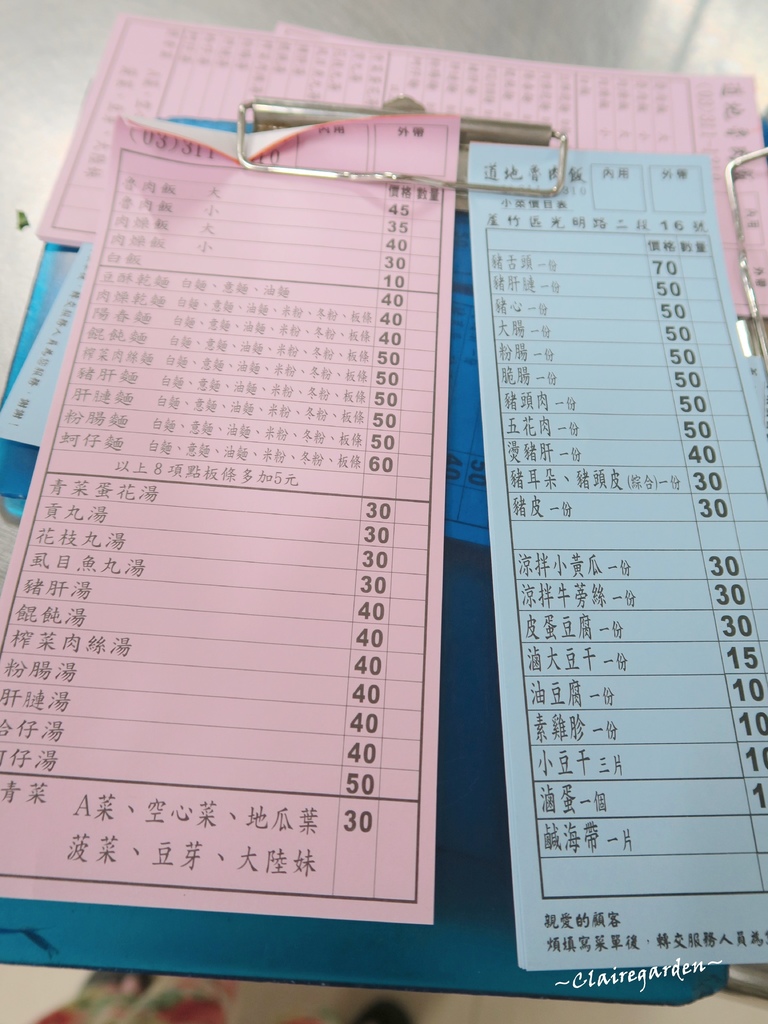 (03)311
內用 外帶
價格 數量
魯肉飯 大 45
魯肉飯 小 35
肉燥飯 大 40
肉燥飯 小 30
白飯 10
豆酥乾麵 白麵、意麵、油麵 40
肉燥乾麵 白麵、意麵、油麵、米粉、冬粉、板條 40
陽春麵 白麵、意麵、油麵、米粉、冬粉、板條 40
餛飩麵 白麵、意麵、油麵、米粉、冬粉、板條 50
榨菜肉絲麵 白麵、意麵、油麵、米粉、冬粉、板條 50
豬肝麵 白麵、意麵、油麵、米粉、冬粉、板條 50
肝膢麵 白麵、意麵、油麵、米粉、冬粉、板條 50
粉腸麵 白麵、意麵、油麵、米粉、冬粉、板條 50
蚵仔麵 白麵、意麵、油麵、米粉、冬粉、板條 60
以上8項點板條多加5元
青菜蛋花湯 30
貢丸湯 30
花枝丸湯 30
虱目魚丸湯 30
豬肝湯 40
餛飩湯 40
榨菜肉絲湯 40
粉腸湯 40
肝膢湯 40
合仔湯 40
仔湯 50
青菜 A菜、空心菜、地瓜葉 30
菠菜、豆芽、大陸妹
道地魯肉飯 內用 外帶
小菜價目表
蘆竹區光明路二段16號
價格 數量
豬舌頭一份 70
豬肝膢一份 50
豬心一份 50
大腸一份 50
粉腸一份 50
脆腸一份 50
豬頭肉一份 50
五花肉一份 50
燙豬肝一份 40
豬耳朵、豬頭皮(綜合)一份 30
豬皮一份 30
涼拌小黃瓜一份 30
涼拌牛蒡絲一份 30
皮蛋豆腐一份 30
滷大豆干一份 15
油豆腐一份 10
素雞胗一份 10
小豆干三片 10
滷蛋一個 1
鹹海帶一片
親愛的顧客
煩填寫菜單後，轉交服務人員為
~Clairegarden~